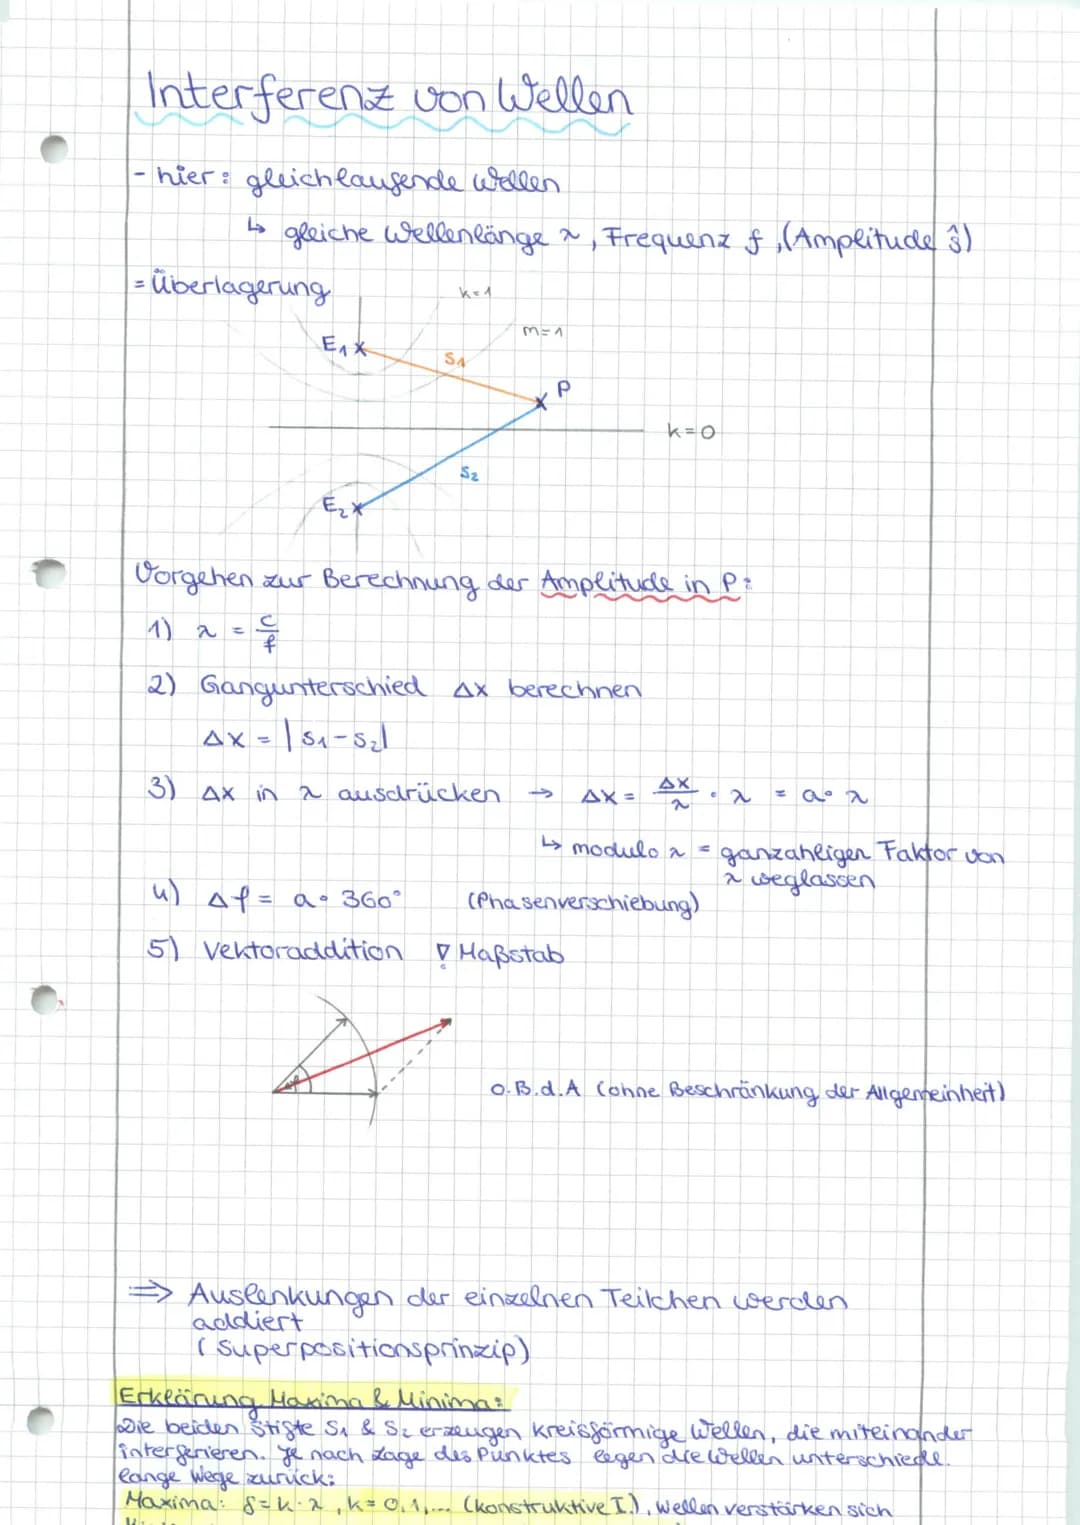 Interferenz von Wellen
- hier: gleichlaufende Wellen
↳ gleiche Wellenlänge λ, Frequenz f, (Amplitude ŝ)
= Überlagerung
k=1
m=1
E₁
s₁
P
k=0
s₂
E₂
Vorgehen zur Berechnung der Amplitude in P:
1) λ = c/f
2) Gangunterschied Δx berechnen
Δx = |s₁-s₂|
3) Δx in λ ausdrücken → Δx = Δx/λ · λ = a · λ
↳ modulo λ = ganzahligen Faktor von
λ weglassen
4) Δφ = a · 360° (Phasenverschiebung)
5) Vektoraddition ! Maßstab
Δφ
O.B.d.A (ohne Beschränkung der Allgemeinheit)
⇒ Auslenkungen der einzelnen Teilchen werden
addiert
(Superpositionsprinzip)
Erklärung Maxima & Minima:
Die beiden Stifte S₁ & S₂ erzeugen kreisförmige Wellen, die miteinander
interferieren. Je nach Lage des Punktes legen die Wellen unterschiedl.
lange Wege zurück:
Maxima: δ = k · λ, k = 0,1,... (konstruktive I.), Wellen verstärken sich